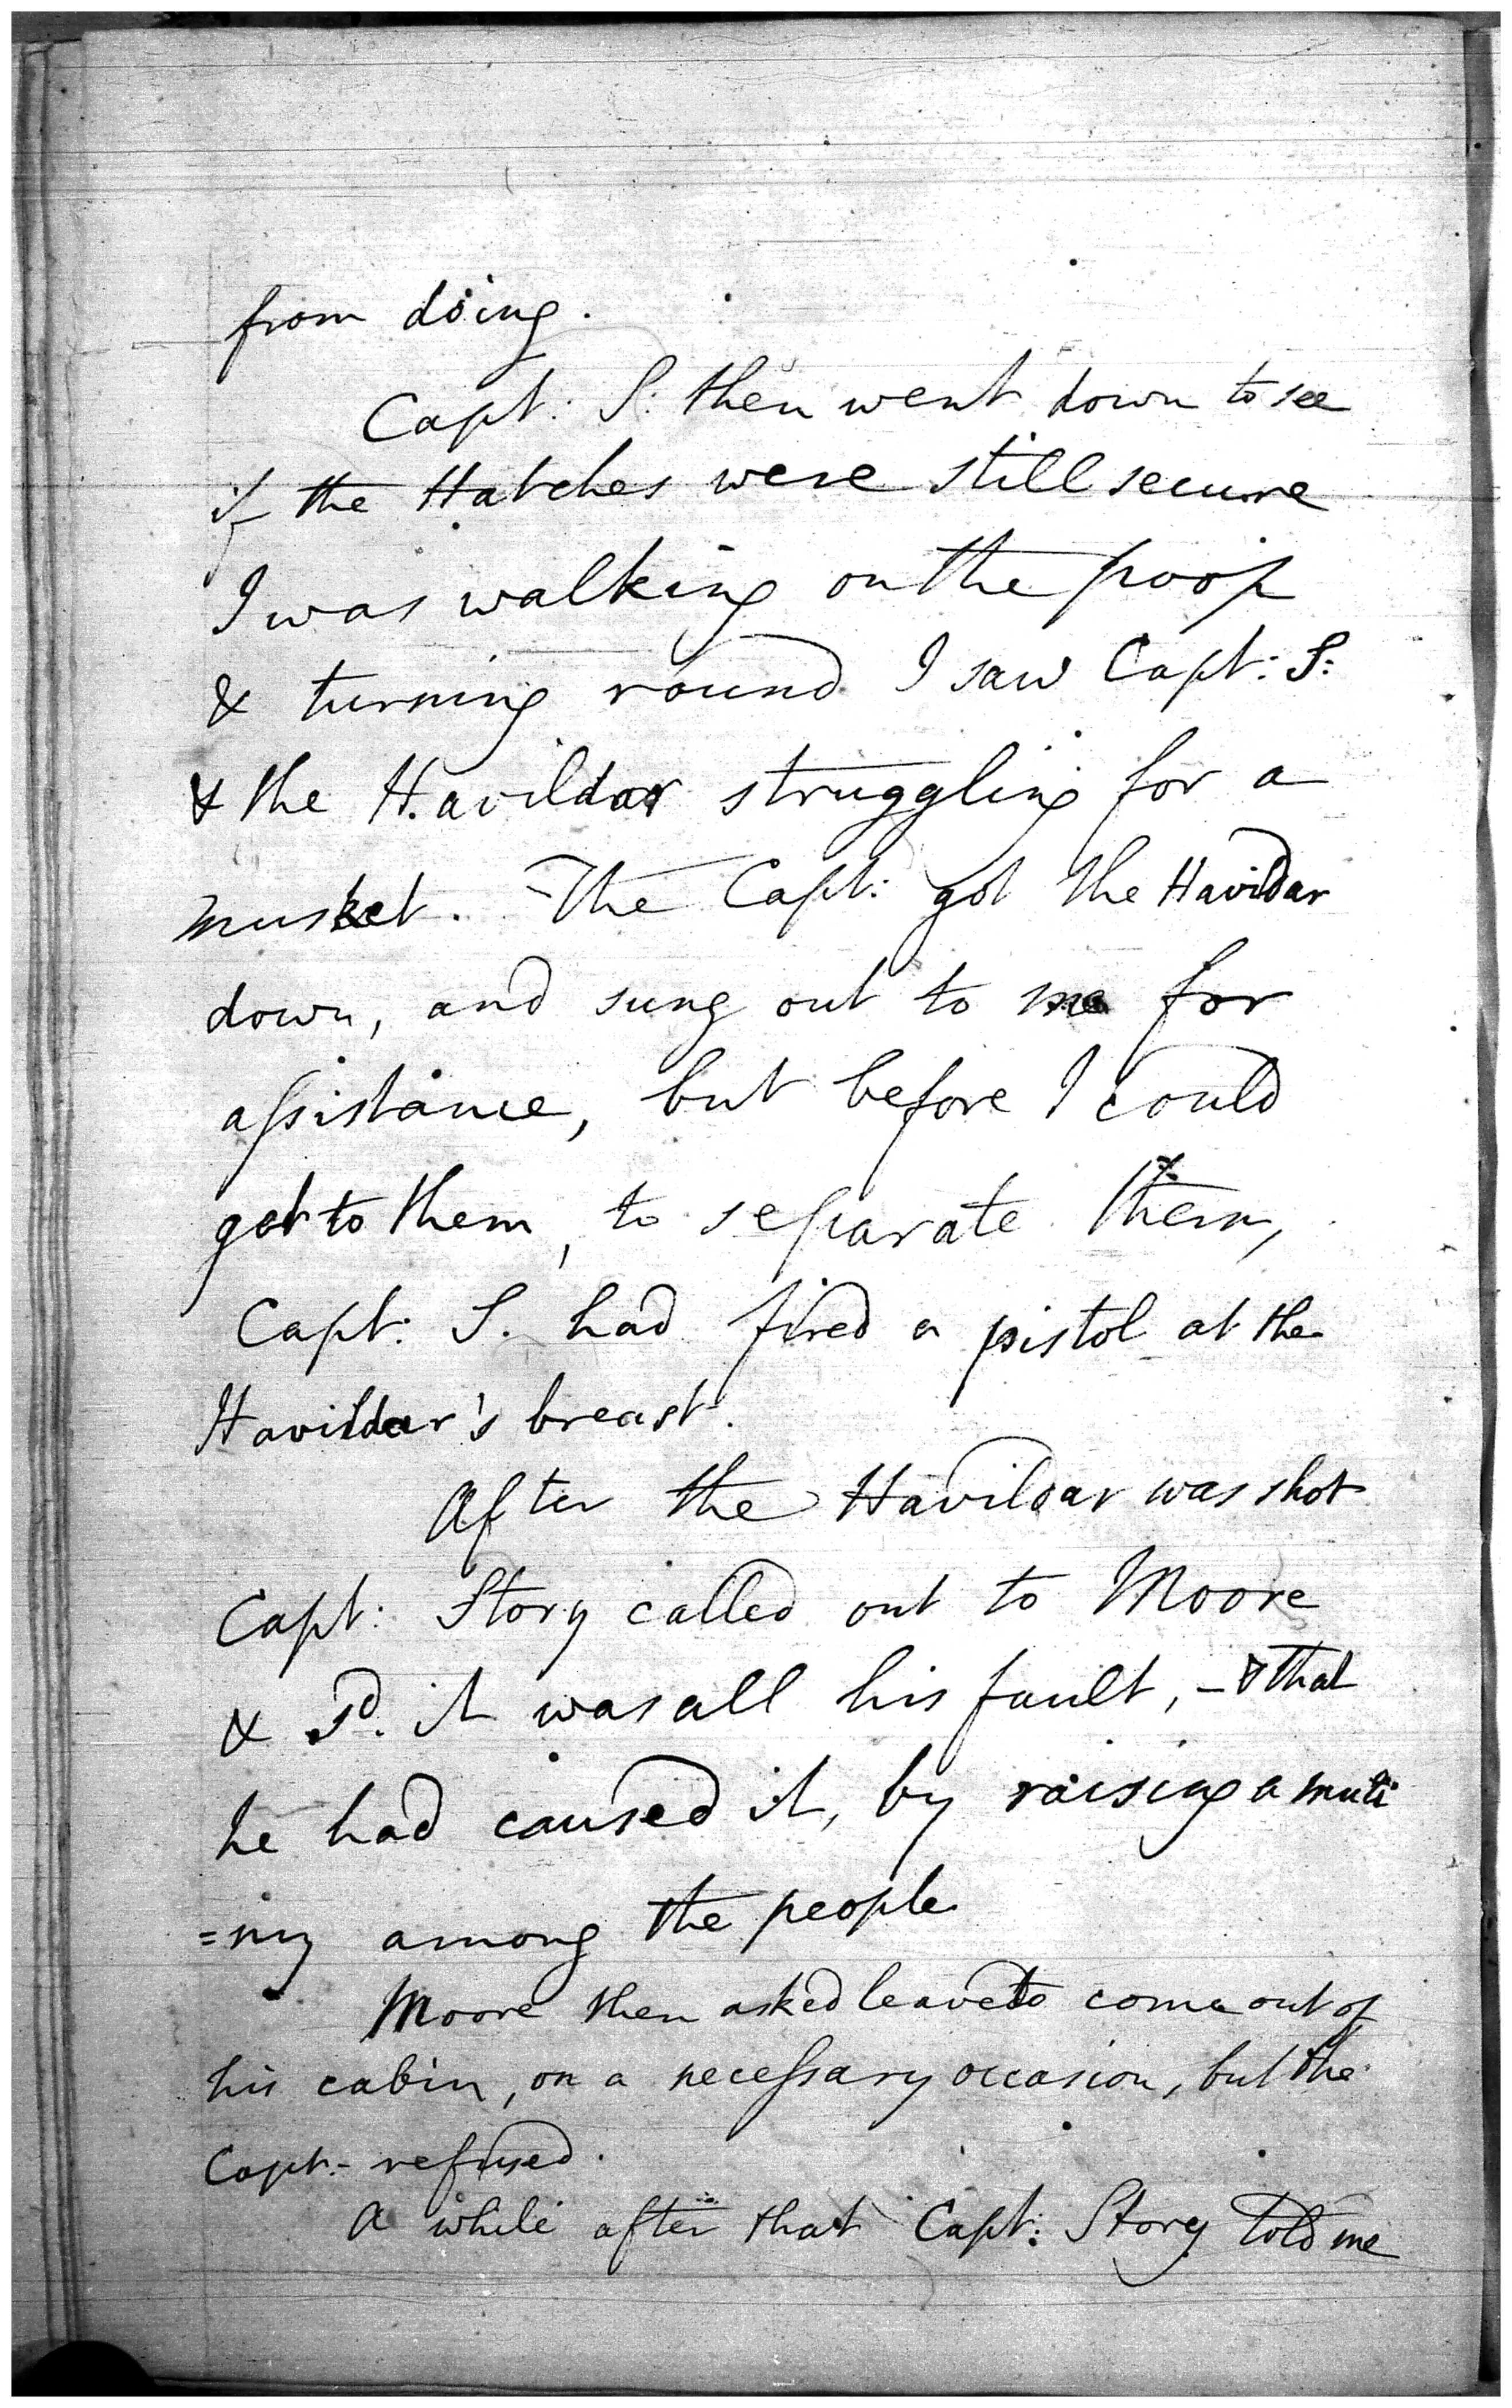 from doing.
Capt: S: then went down to see
if the Hatches were still secure
I was walking on the poop
& turning round I saw Capt: S:
& the Havildar struggling for a
musket. The Capt: got the Havildar
down, and sung out to me for
assistance, but before I could
get to them, to separate them,
Capt: S. had fired a pistol at the
Havildar's breast.
After the Havildar was shot
Capt: Story called out to Moore
& sd. it was all his fault, - & that
he had caused it, by raising a muti
=ny among the people
Moore then asked leave to come out of
his cabin, on a necessary occasion, but the
Capt:- refused.
A while after that Capt: Story told me